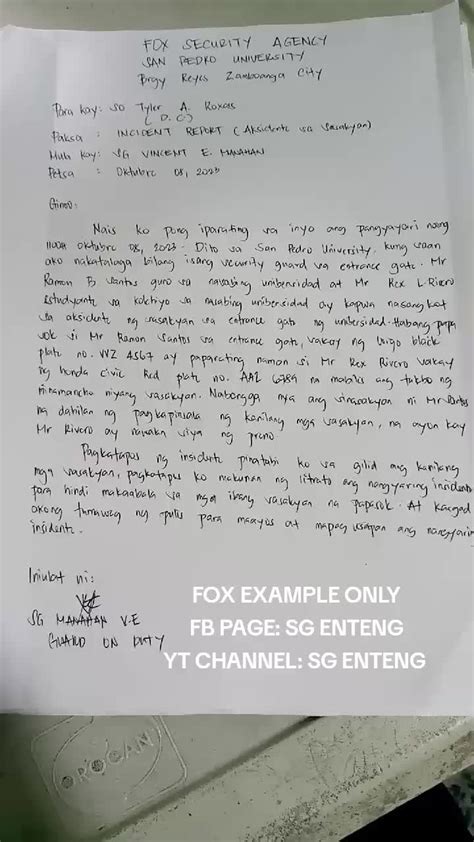 FOX SECURITY AGENCY
SAN PEDRO UNIVERSITY
Brgy Reyes Zamboanga City
Para kay: SO Tyler A. Roxas
(D.C)
Paksa : INCIDENT REPORT (Aksidente sa Sasakyan)
Mula kay: SG VINCENT E. MANAHAN
Petsa : Oktubre 08, 2023
Ginoo:
Nais ko pong iparating sa inyo ang pangyayari noong
Oktubre 08, 2023. Dito sa San Pedro University. kung saan
ako nakatalaga bilang isang security guard sa entrance gate. Mr
Ramon B. Santos guro sa nasabing unibersidad at Mr Rex L. Rivero
estudyante sa kolehiyo sa nasabing unibersidad ay kapwa nasangkot
sa aksidente ng sasakyan sa entrance gate ng unibersidad. Habang papa
sok si Mr Ramon Santos sa entrance gate, sakay ng black
plate no. VVZ 4567 ay paparating naman si Mr Rex Rivero sakay
ng honda civic Red plate no. AAZ 6789 na mabilis ang takbo ng
minamaneho niyang sasakyan. Nabangga nya ang sinasakyan ni Mr Santos
na dahilan ng pagkapinsala ng kanilang mga sasakyan, na ayon kay
Mr Rivero ay nawalan siya ng preno.
Pagkatapos ng insidente pinatabi ko sa gilid ang kanilang
mga sasakyan, pagkatapos ko makunan ng litrato ang nangyaring insidente
para hindi makaabala sa mga ibang sasakyan na papasok. At kaagad
akong tumawag ng pulis para maayos at mapag usapan ang nangyaring
insidente.
Iniulat ni:
SG MANAHAN V.E
GUARD ON DUTY
FOX EXAMPLE ONLY
FB PAGE: SG ENTENG
YT CHANNEL: SG ENTENG
OROCAN